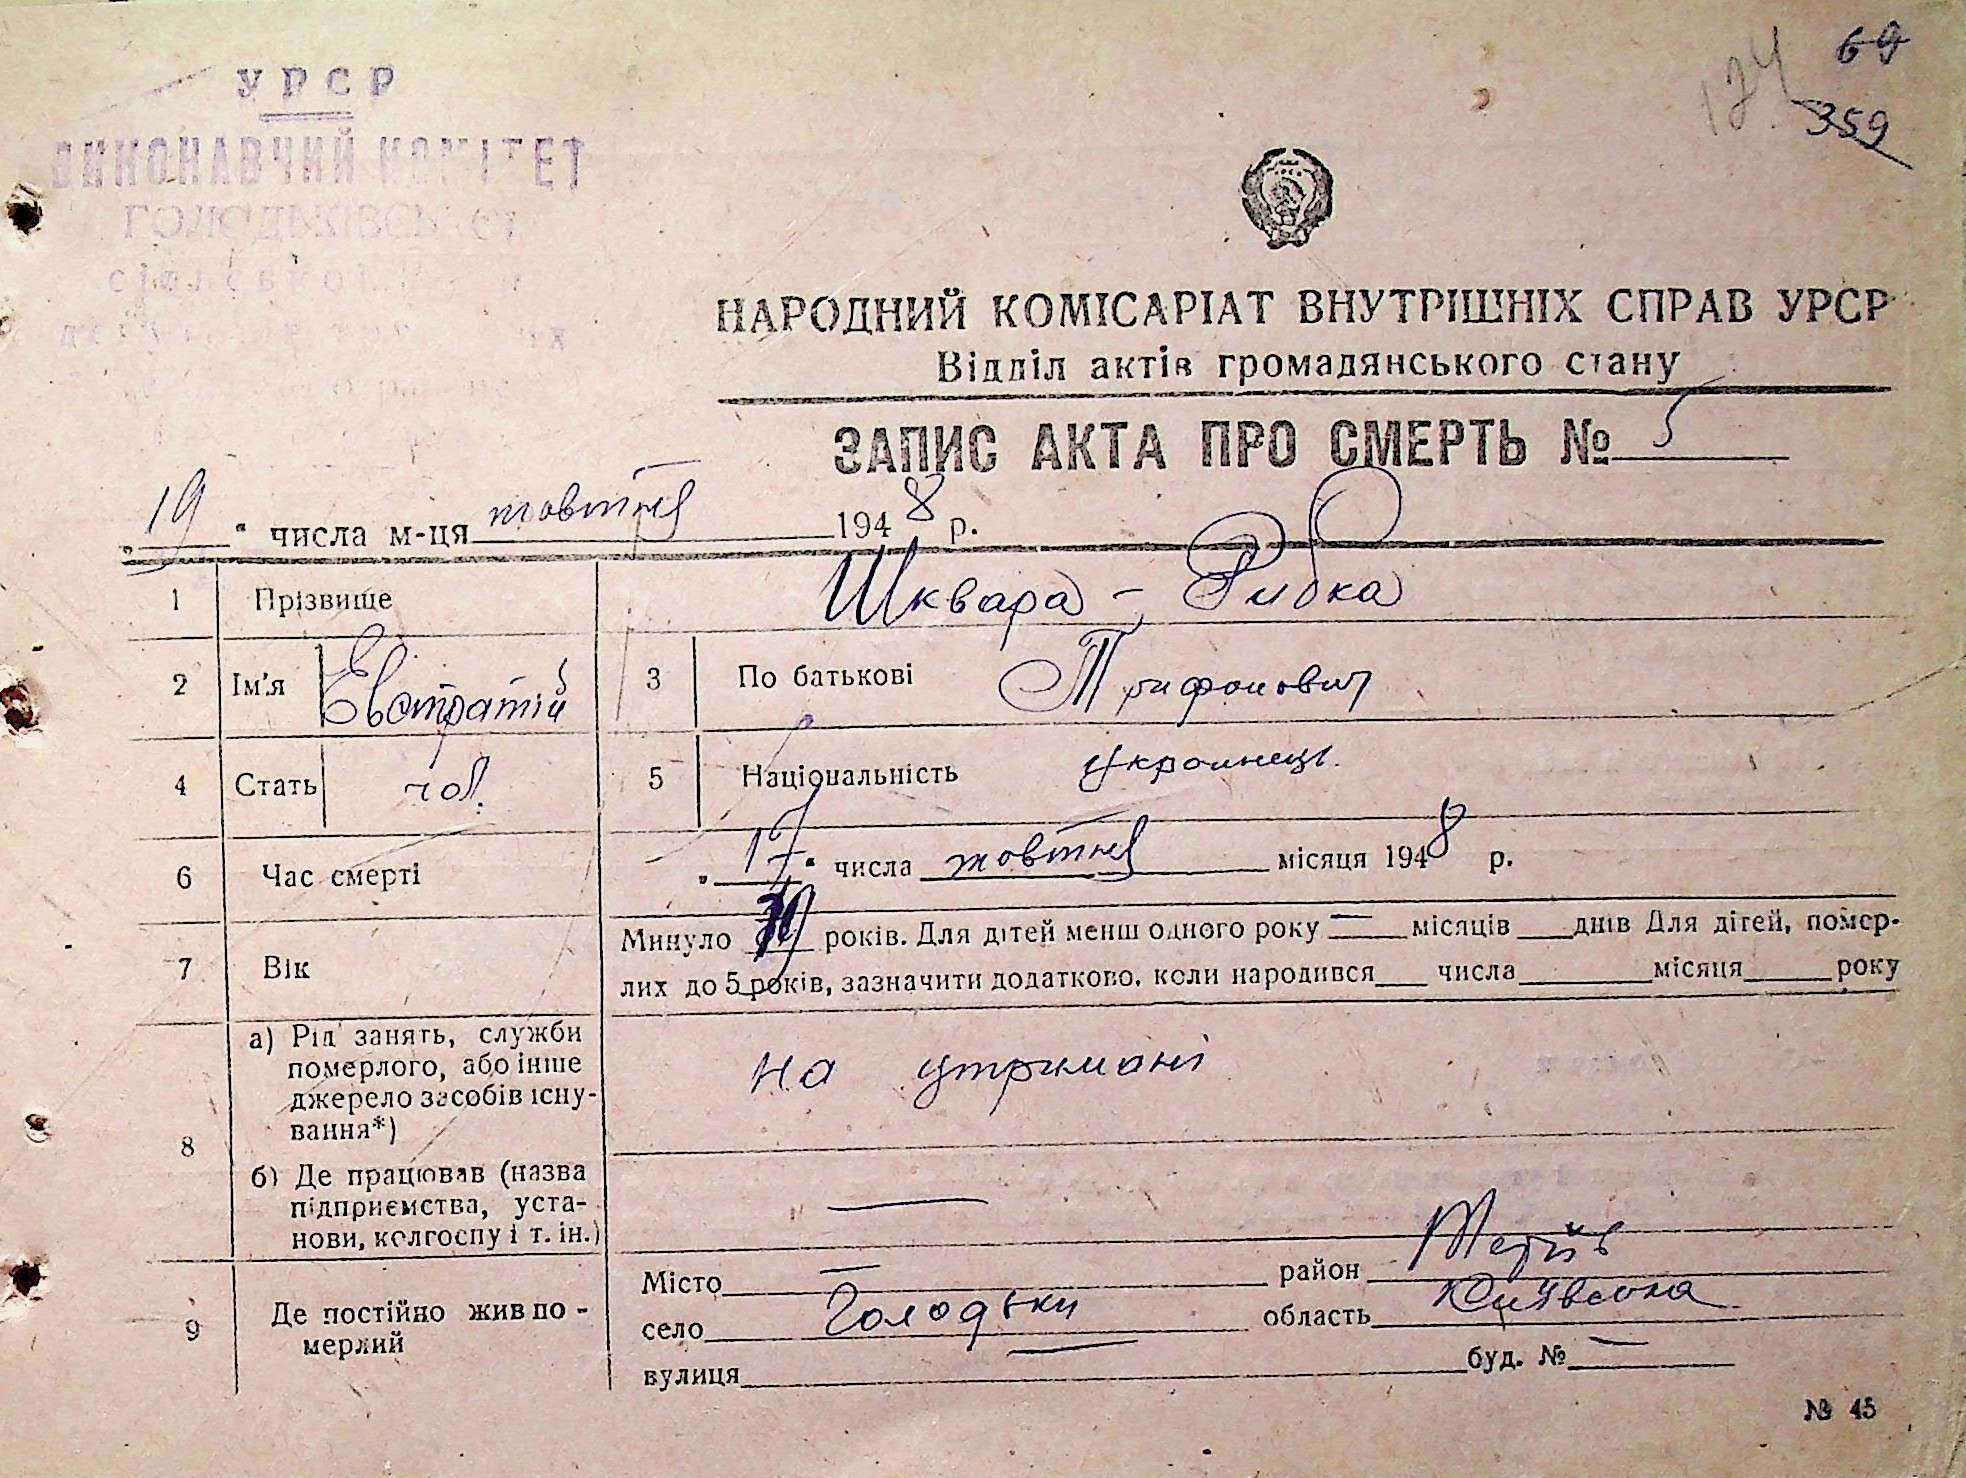 УРСР
ВИКОНАВЧИЙ КОМІТЕТ
69
174
359
НАРОДНИЙ КОМІСАРІАТ ВНУТРІШНІХ СПРАВ УРСР
Відділ актів громадянського стану
ЗАПИС АКТА ПРО СМЕРТЬ № 5
„ 19 “ числа м-ця жовтня 1948 р.
1 Прізвище Шквара - Рибка
2 Ім'я Евстратій 3 По батькові Трифонович
4 Стать чол. 5 Національність українець.
6 Час смерті „ 17 “ числа жовтня місяця 1948 р.
7 Вік Минуло років. Для дітей менш одного року — місяців ___ днів Для дітей, помер-
лих до 5 років, зазначити додатково, коли народився ___ числа ___ місяця ___ року
8 а) Рід занять, служби
померлого, або інше
джерело засобів існу-
вання*) на утримані
б) Де працював (назва
підприємства, уста-
нови, колгоспу і т. ін.) —
9 Де постійно жив по-
мерлий
Місто — район
село Голодьки область Київська
вулиця — буд. № —
№ 45